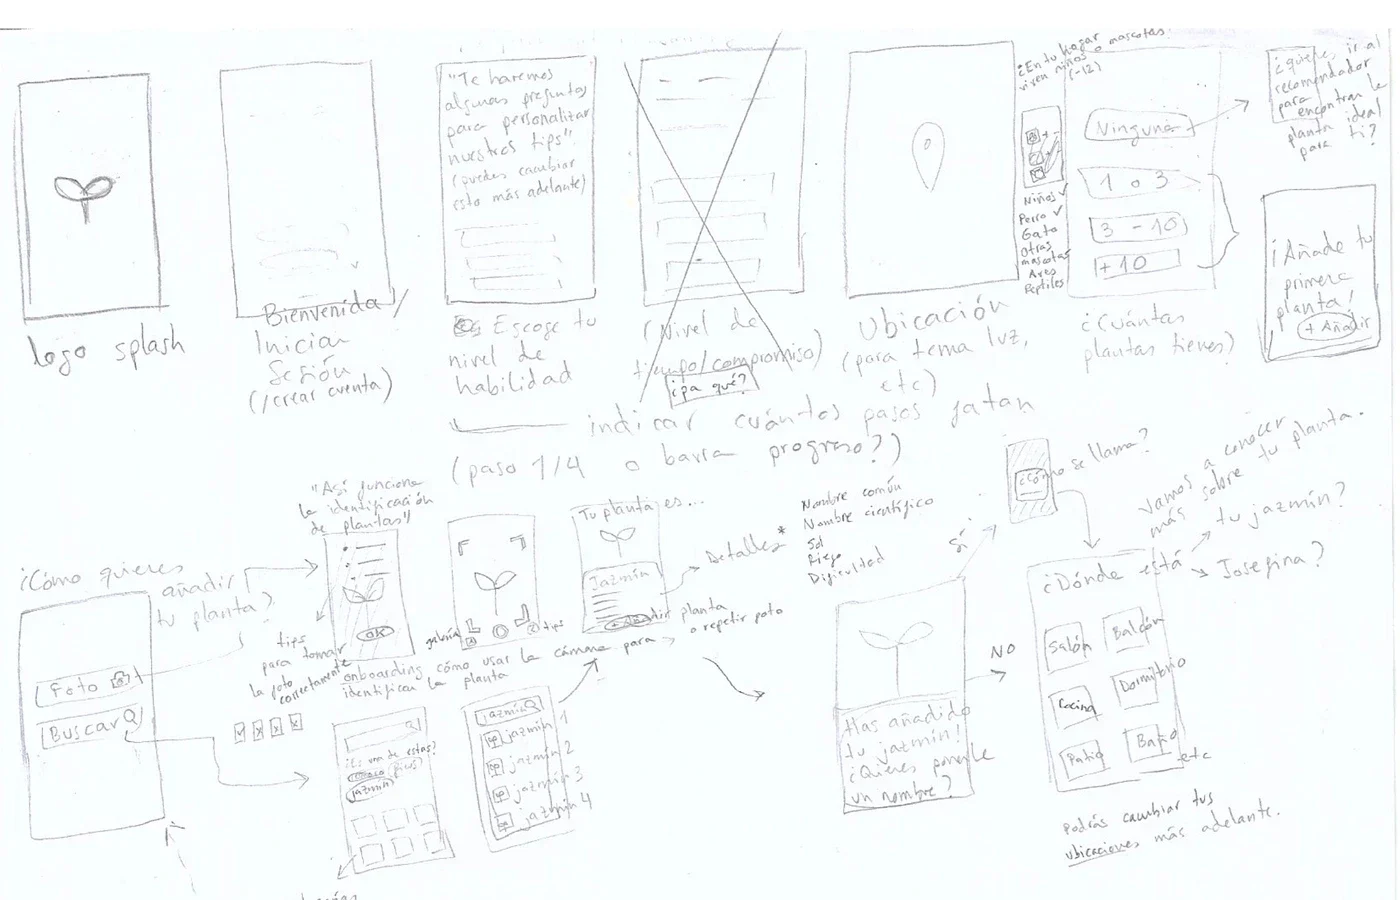 logo splash
Bienvenida/
Iniciar
Sesión
(/crear cuenta)
"Te haremos
algunas preguntas
para personalizar
nuestros tips"
(puedes cambiar
esto más adelante)
Escoge tu
nivel de
habilidad
(Nivel de
tiempo/compromiso)
¿pa qué?
Ubicación
(para tema luz,
etc)
¿En tu hogar
viven niños o mascotas?
(-12)
Niños ✓
Perro ✓
Gato
Otras
mascotas
Aves
Reptiles
Ninguna
1 o 3
3 - 10
+10
¿Cuántas
plantas tienes?
¿quiere ir al
recomendador
para
encontrar la
planta ideal
para ti?
¡Añade tu
primera
planta!
+ Añadir
indicar cuántos pasos faltan
(paso 1/4 o barra progreso?)
¿Cómo quieres
añadir
tu planta?
Foto
Buscar
"Así funciona
la identificación
de plantas"
OK
tips
para tomar
la foto
correctamente
galería
tips
onboarding cómo usar la cámara para
identificar la planta
Tu planta es...
Jazmín
+ Añadir planta
o repetir foto
Detalles *
Nombre común
Nombre científico
Sol
Riego
Dificultad
¿Es una de estas?
ficus
jazmín
jazmín
jazmín 1
jazmín 2
jazmín 3
jazmín 4
Has añadido
tu jazmín!
¿Quieres ponerle
un nombre?
Sí
NO
¿Cómo se llama?
Vamos a conocer
más sobre tu planta.
¿Dónde está
tu jazmín?
Josefina?
Salón
Balcón
Cocina
Dormitorio
Patio
Baño
etc
Podrás cambiar tus
ubicaciones más adelante.